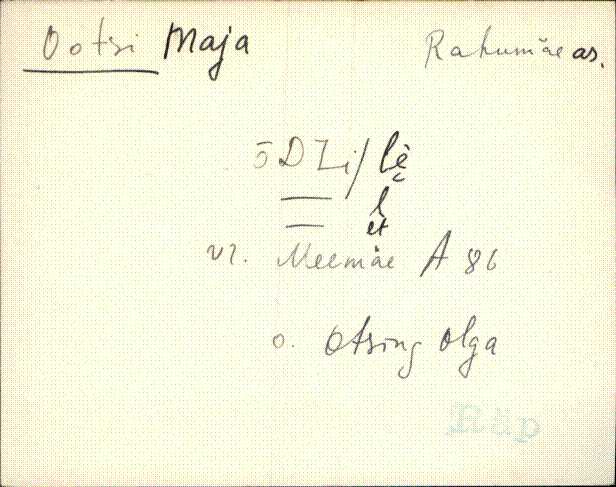 Ootsi Maja Rahumäe as.
õDZi/lè
l
et
vr. Meemäe A 86
o. Otsing Olga
Räp